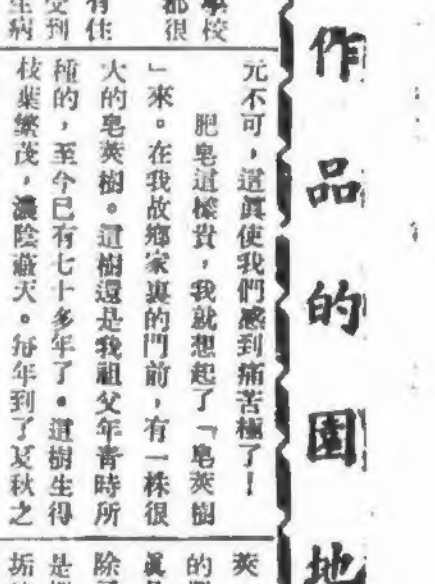 作品的園地
學校
都很
有住
受到
生病
元不可，這眞使我們感到痛苦極了！
肥皂這樣貴，我就想起了「皂莢樹
」來。在我故鄉家裏的門前，有一株很
大的皂莢樹。這樹還是我祖父年青時所
種的，至今已有七十多年了。這樹生得
枝葉繁茂，濃陰蔽天。每年到了夏秋之
莢
的
眞
除
是
垢